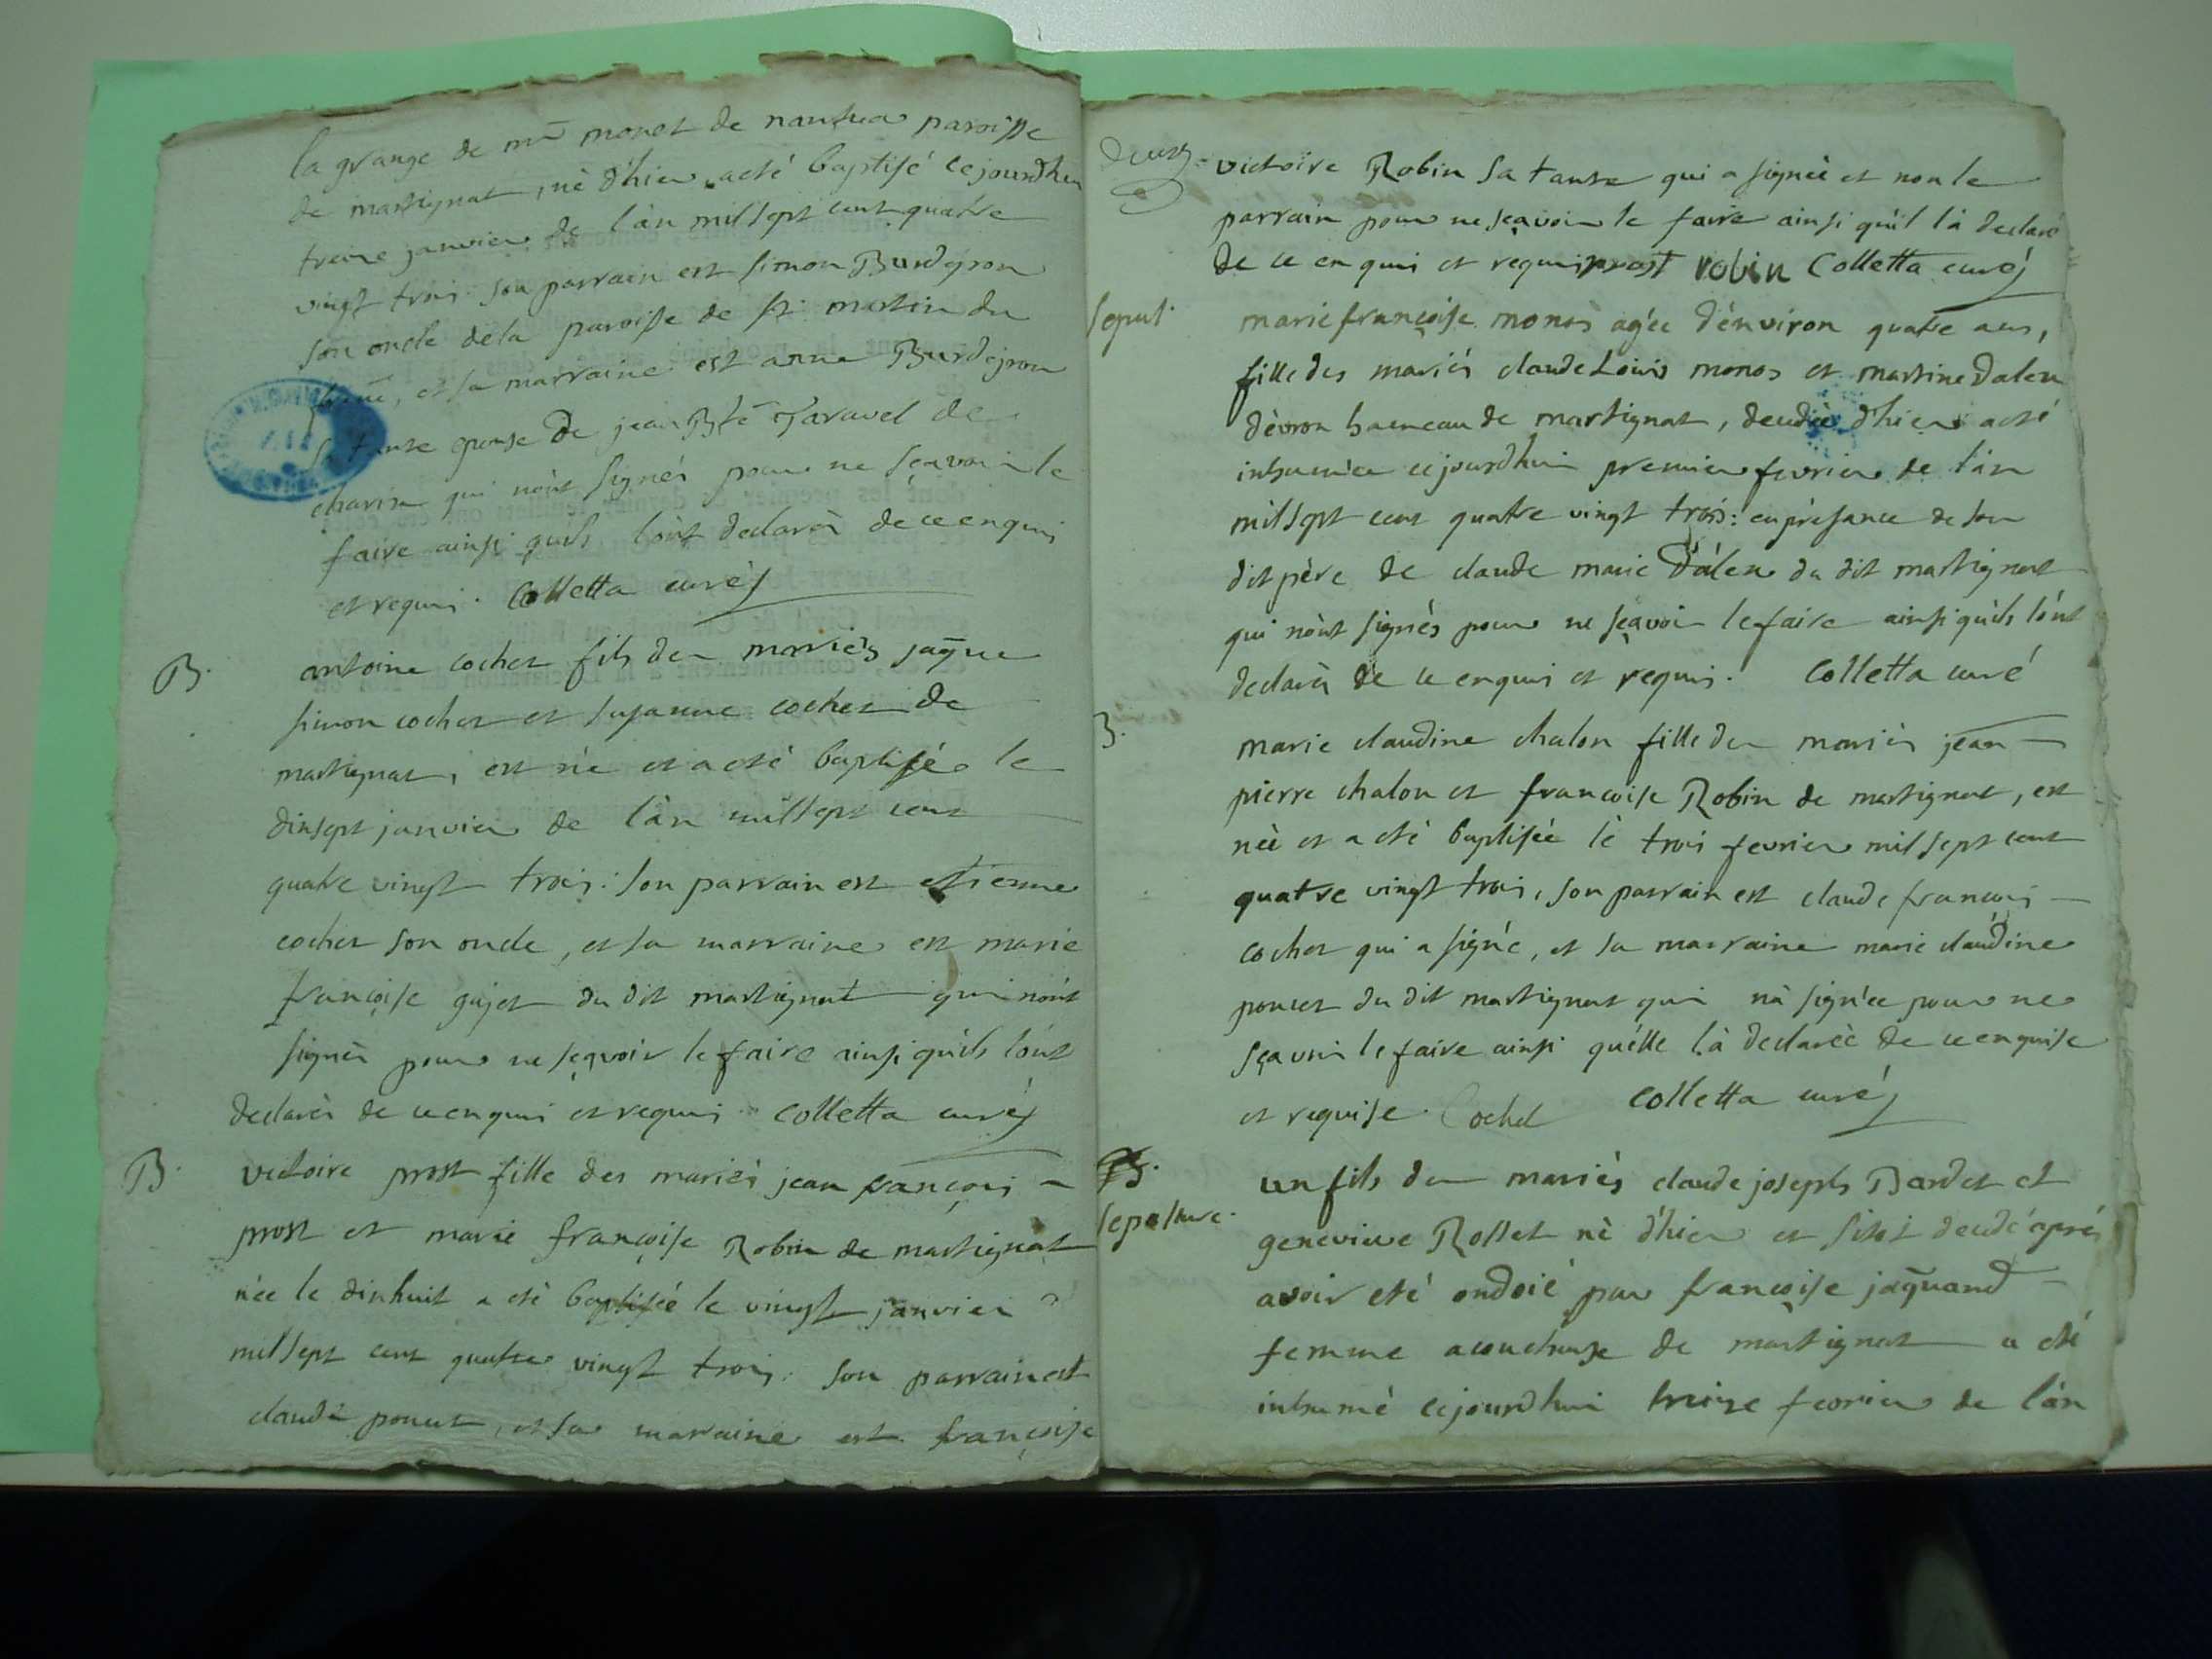 la grange de mr monet de nantua paroisse
de martignat, né d'hier, a eté baptisé cejourdhui
treize janvier de l'àn mil sept cent quatre
vingt trois. son parrain est simon Burdeyron
son oncle de la paroisse de st martin du
et sa marraine est anne Burdeyron
sa tante epouse de jean Bte Taravel de
charix qui nònt signés pour ne sçavoir le
faire ainsi quils lònt declarés de ce enquis
et requis. Colletta curé
B. antoine cochet fils des mariés jaque
simon cochet et susanne cochet de
martignat, est né et a eté baptisé le
dixsept janvier de l'àn mil sept cent
quatre vingt trois: son parrain est etienne
cochet son oncle, et sa marraine est marie
françoise gujet du dit martignat qui nònt
signés pour ne sçavoir le faire ainsi quìls lònt
declarés de ce enquis et requis. Colletta curé
B. victoire prost fille des mariés jean françois
prost et marie françoise Robin de martignat
née le dixhuit a eté baptisée le vingt janvier
mil sept cent quatre vingt trois. son parrain est
claude poncet, et sa marraine est françoise
deux
victoire Robin sa tante qui a signée et non le
parrain pour ne sçavoir le faire ainsi qu'il l'à declaré
de ce enquis et requis prost robin Colletta curé
sepul. marie françoise monos agée d'environ quatre ans,
fille des mariés claude Louis monos et martine Dalen
d'evron hameau de martignat, decedée d'hier a eté
inhumée cejourdhui premier fevrier de l'àn
mil sept cent quatre vingt trois: en présance de son
dit père de claude marie Dàlen du dit martignat
qui nònt signés pour ne sçavoir le faire ainsi quìls lònt
declarés de ce enquis et requis. Colletta curé
B. marie claudine chalon fille des mariés jean
pierre chalon et francoise Robin de martignat, est
née et a eté baptisée le trois fevrier mil sept cent
quatre vingt trois, son parrain est claude francois
cochet qui a signé, et sa marraine marie claudine
poncet du dit martignat qui nà signée pour ne
sçavoir le faire ainsi quélle l'à declarée de ce enquise
et requise. Cochet Colletta curé
B. un fils des mariés claude joseph Bardet et
sepulture. genevieve Rollet né d'hier et sitot decedé aprés
avoir eté ondoié par francoise jaquand
femme acoucheuse de martignat a eté
inhumé cejourdhui treize fevrier de l'àn